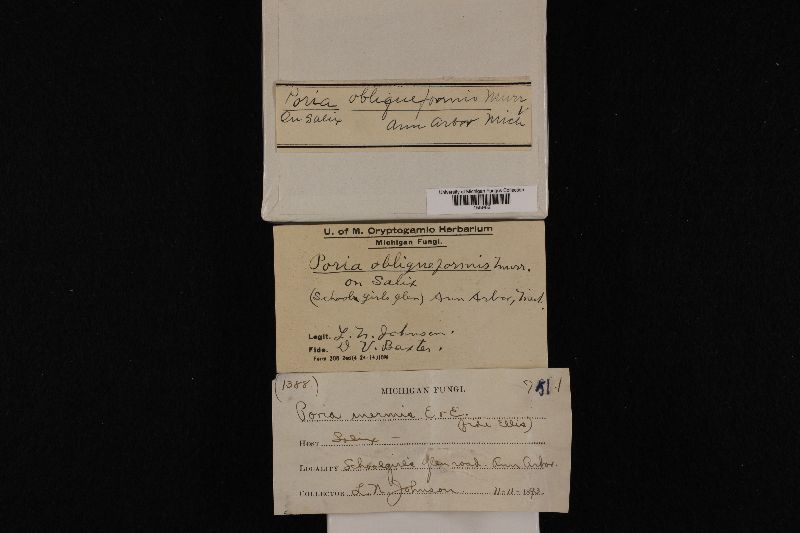 Poria obliqueformis Murr
On Salix
Ann Arbor Mich
University of Michigan Fungus Collection
U. of M. Cryptogamic Herbarium
Michigan Fungi.
Poria obliqueformis Murr.
on Salix
(School girls glen) Ann Arbor, Mich.
Legit. L. N. Johnson.
Fide. D V. Baxter.
(1388)
MICHIGAN FUNGI.
Poria inermis E & E.
(fide Ellis)
HOST Salix —
LOCALITY Schoolgirls glen road. Ann Arbor.
COLLECTOR L. N. Johnson 11-11-1893.